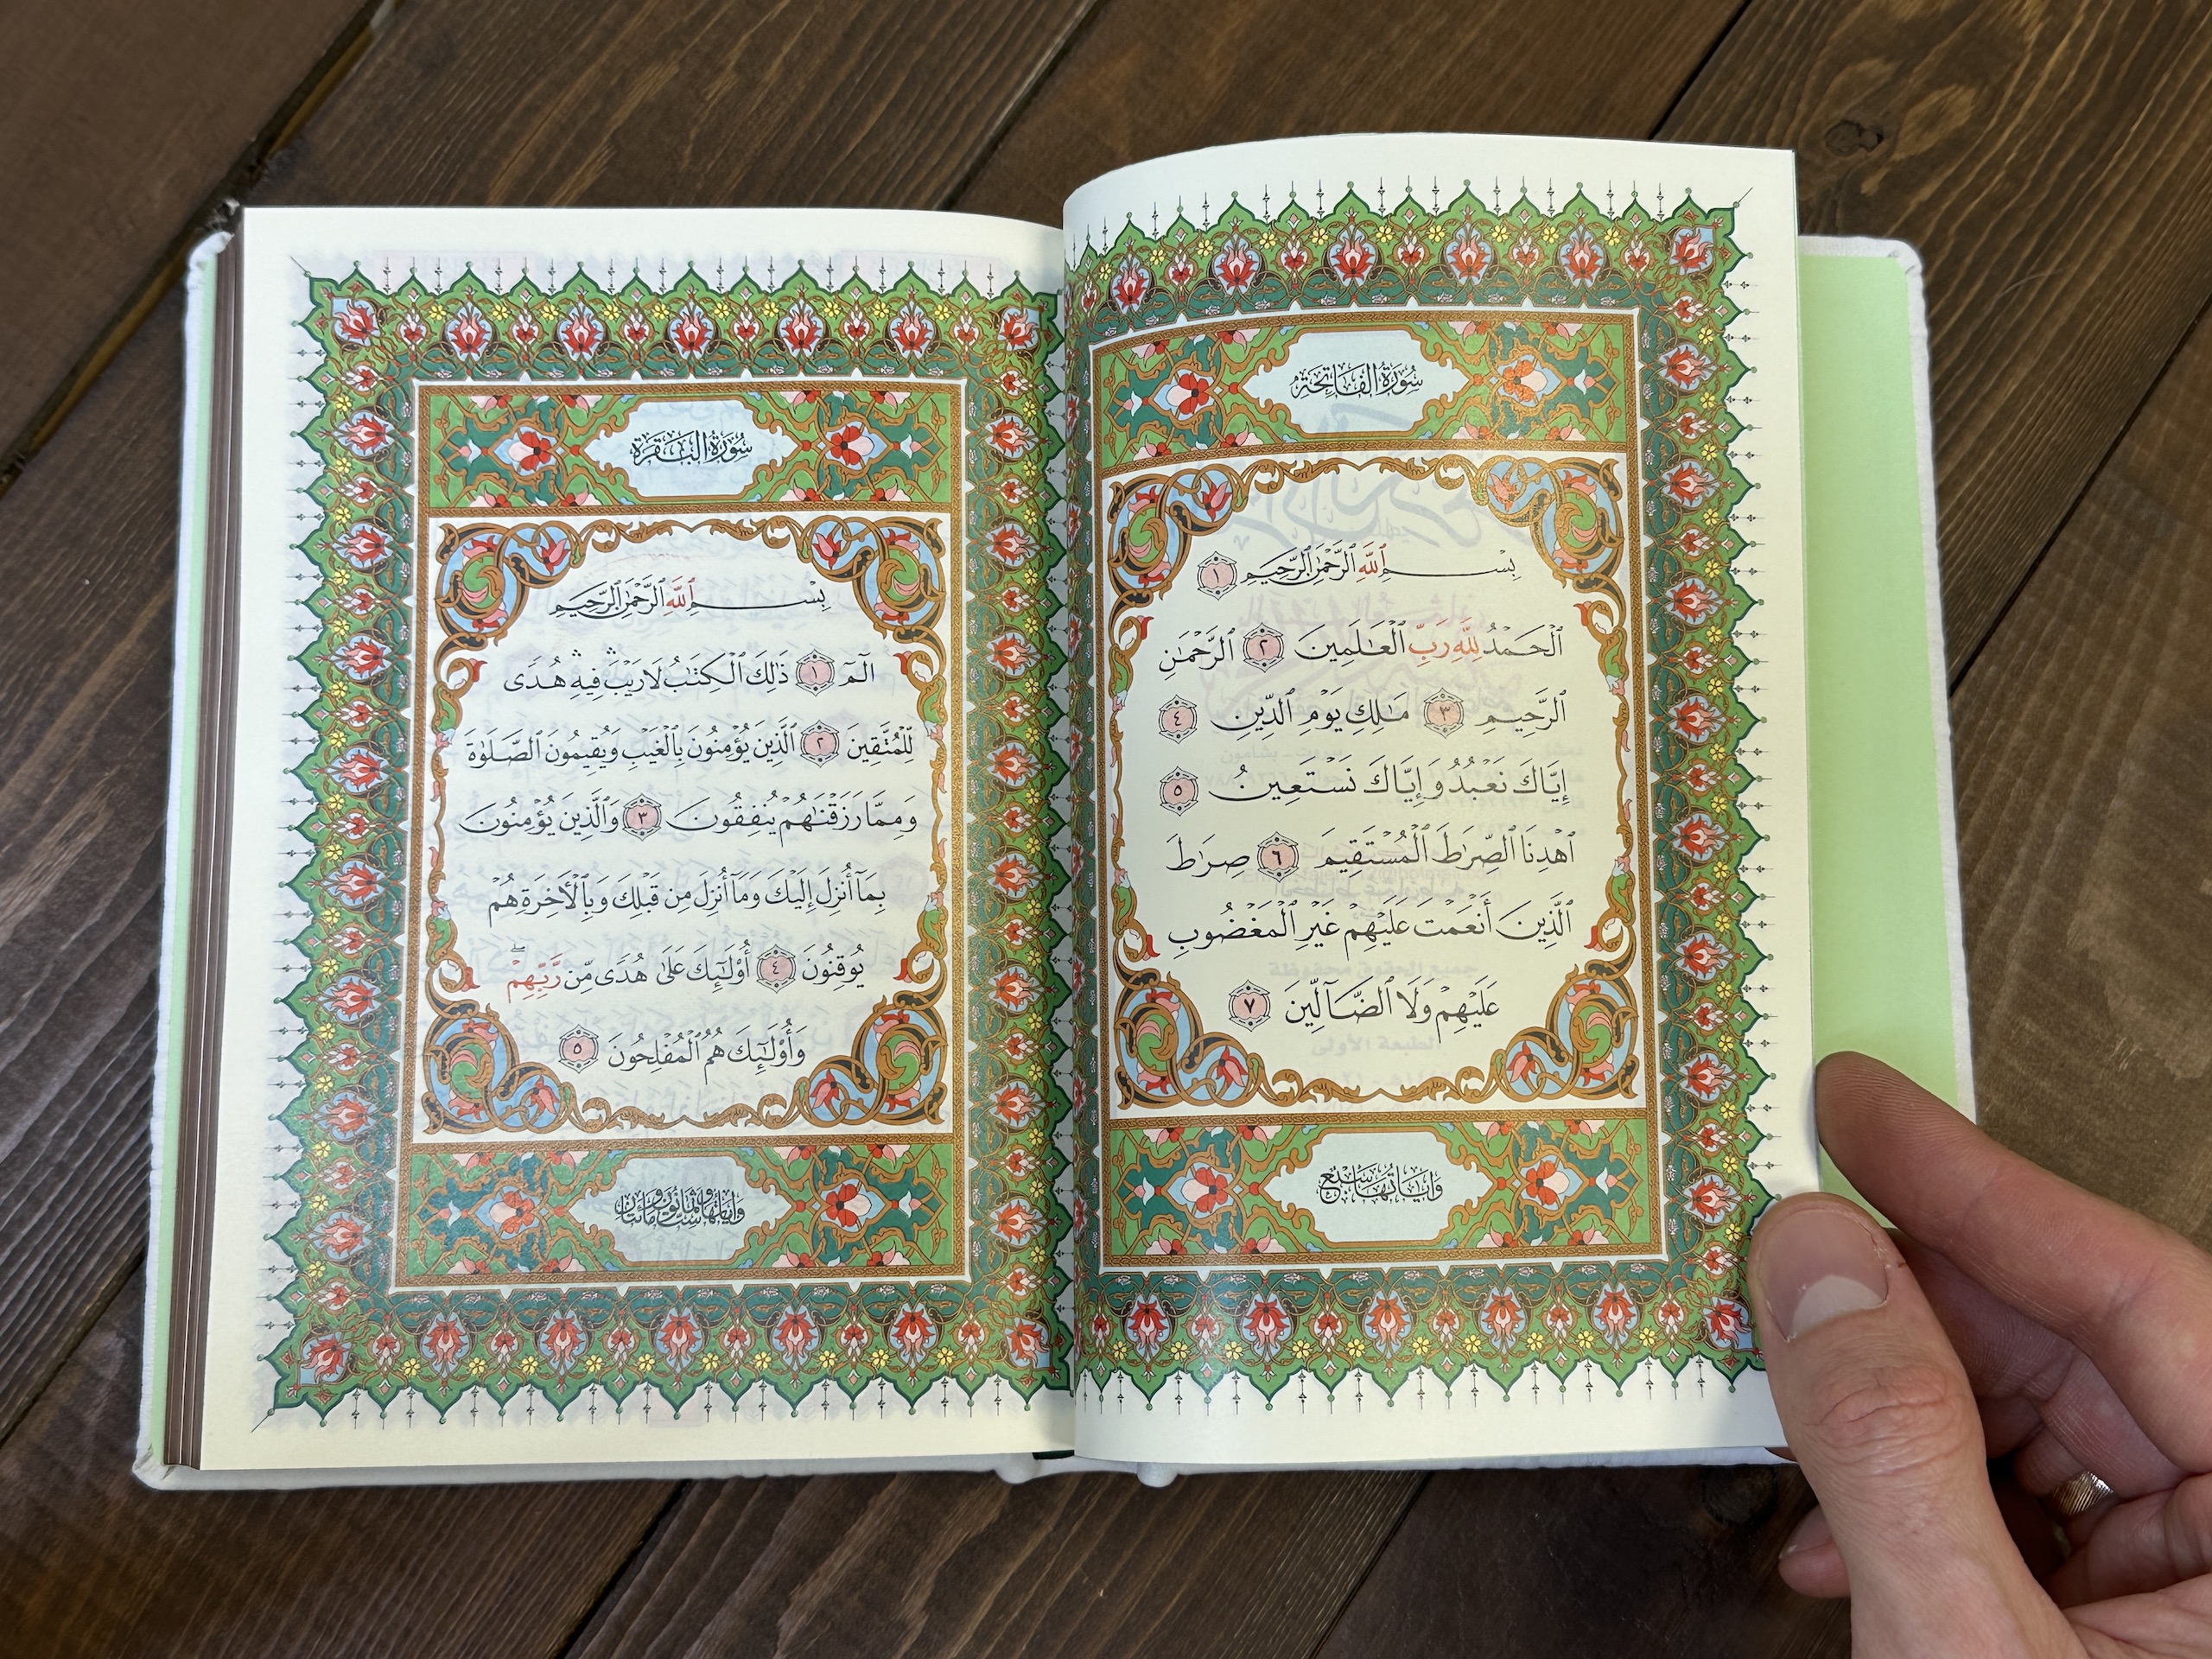 سُورَةُ الفَاتِحَةِ
بِسْمِ ٱللَّهِ ٱلرَّحْمَٰنِ ٱلرَّحِيمِ ١
ٱلْحَمْدُ لِلَّهِ رَبِّ ٱلْعَٰلَمِينَ ٢ ٱلرَّحْمَٰنِ
ٱلرَّحِيمِ ٣ مَٰلِكِ يَوْمِ ٱلدِّينِ ٤
إِيَّاكَ نَعْبُدُ وَإِيَّاكَ نَسْتَعِينُ ٥
ٱهْدِنَا ٱلصِّرَٰطَ ٱلْمُسْتَقِيمَ ٦ صِرَٰطَ
ٱلَّذِينَ أَنْعَمْتَ عَلَيْهِمْ غَيْرِ ٱلْمَغْضُوبِ
عَلَيْهِمْ وَلَا ٱلضَّآلِّينَ ٧
وَآيَاتُهَا سَبْعٌ
سُورَةُ البَقَرَةِ
بِسْمِ ٱللَّهِ ٱلرَّحْمَٰنِ ٱلرَّحِيمِ
الٓمٓ ١ ذَٰلِكَ ٱلْكِتَٰبُ لَا رَيْبَ ۛ فِيهِ ۛ هُدًى
لِّلْمُتَّقِينَ ٢ ٱلَّذِينَ يُؤْمِنُونَ بِٱلْغَيْبِ وَيُقِيمُونَ ٱلصَّلَوٰةَ
وَمِمَّا رَزَقْنَٰهُمْ يُنفِقُونَ ٣ وَٱلَّذِينَ يُؤْمِنُونَ
بِمَآ أُنزِلَ إِلَيْكَ وَمَآ أُنزِلَ مِن قَبْلِكَ وَبِٱلْأَخِرَةِ هُمْ
يُوقِنُونَ ٤ أُوْلَٰٓئِكَ عَلَىٰ هُدًى مِّن رَّبِّهِمْ ۖ
وَأُوْلَٰٓئِكَ هُمُ ٱلْمُفْلِحُونَ ٥
وَآيَاتُهَا سِتٌّ وَثَمَانُونَ وَمِائَتَانِ